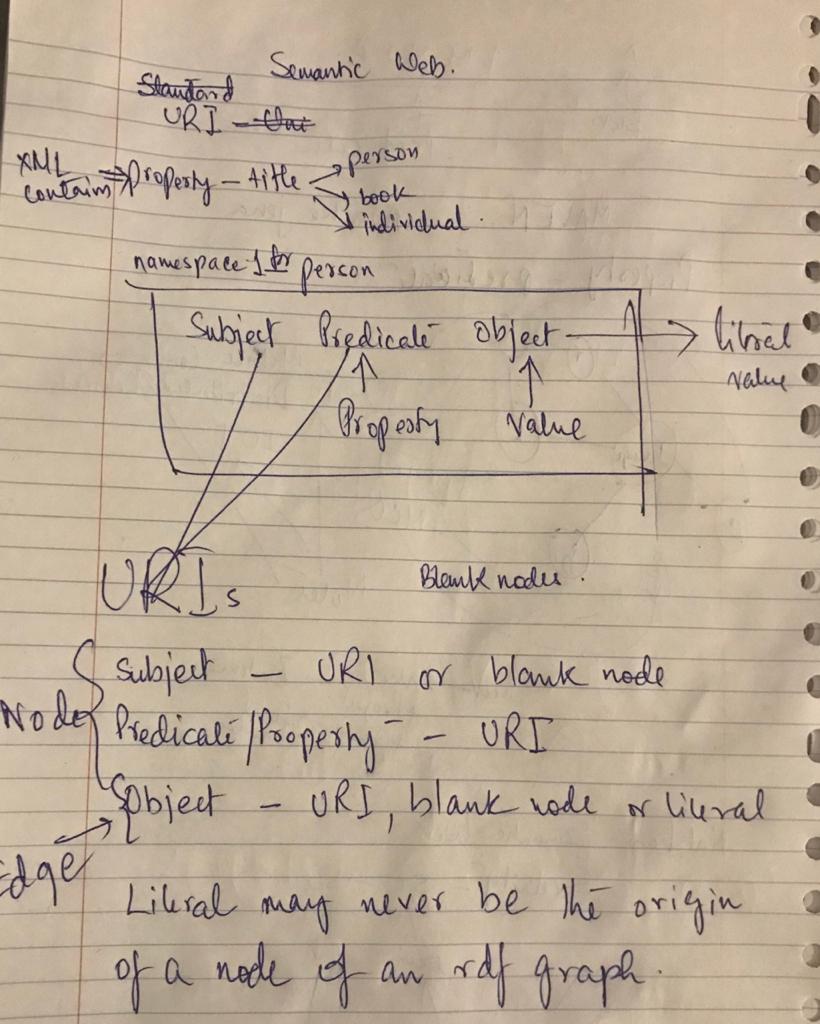 Semantic Web.
Standard
URI –
XML contain ⇒ property – title → person
→ book
→ individual.
namespace 1 for person
Subject Predicate Object → literal value
↑ Property ↑ Value
URIs Blank nodes.
Subject – URI or blank node
Node { Predicate/Property – URI
Object – URI, blank node or literal
Edge →
Literal may never be the origin
of a node of an rdf graph.